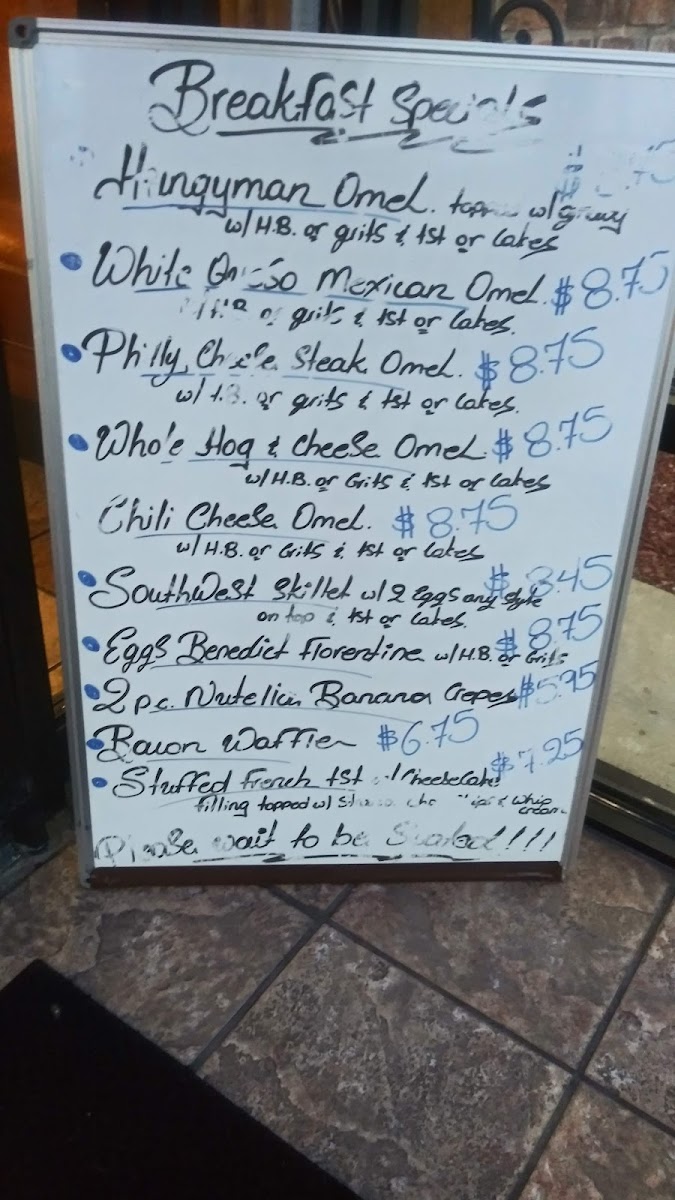 Breakfast Specials
Hungyman Omel. topped w/gravy
w/H.B. or grits & tst or Cakes
White Queso Mexican Omel. $8.75
w/H.B or grits & tst or Cakes.
Philly, Cheese Steak Omel. $8.75
w/H.B. or grits & tst or Cakes.
Whole Hog & Cheese Omel. $8.75
w/H.B. or Grits & tst or Cakes
Chili Cheese Omel. $8.75
w/H.B. or Grits & tst or Cakes
Southwest Skillet w/2 Eggs any style $
on top & tst or Cakes.
Eggs Benedict Florentine w/H.B. or Grits $8.75
2 p.c. Nutella Banana Crepes $5.95
Bacon Waffle $6.75
Stuffed French tst w/Cheesecake $7.25
filling topped w/ & Whip
cream
Please wait to be Seated!!!